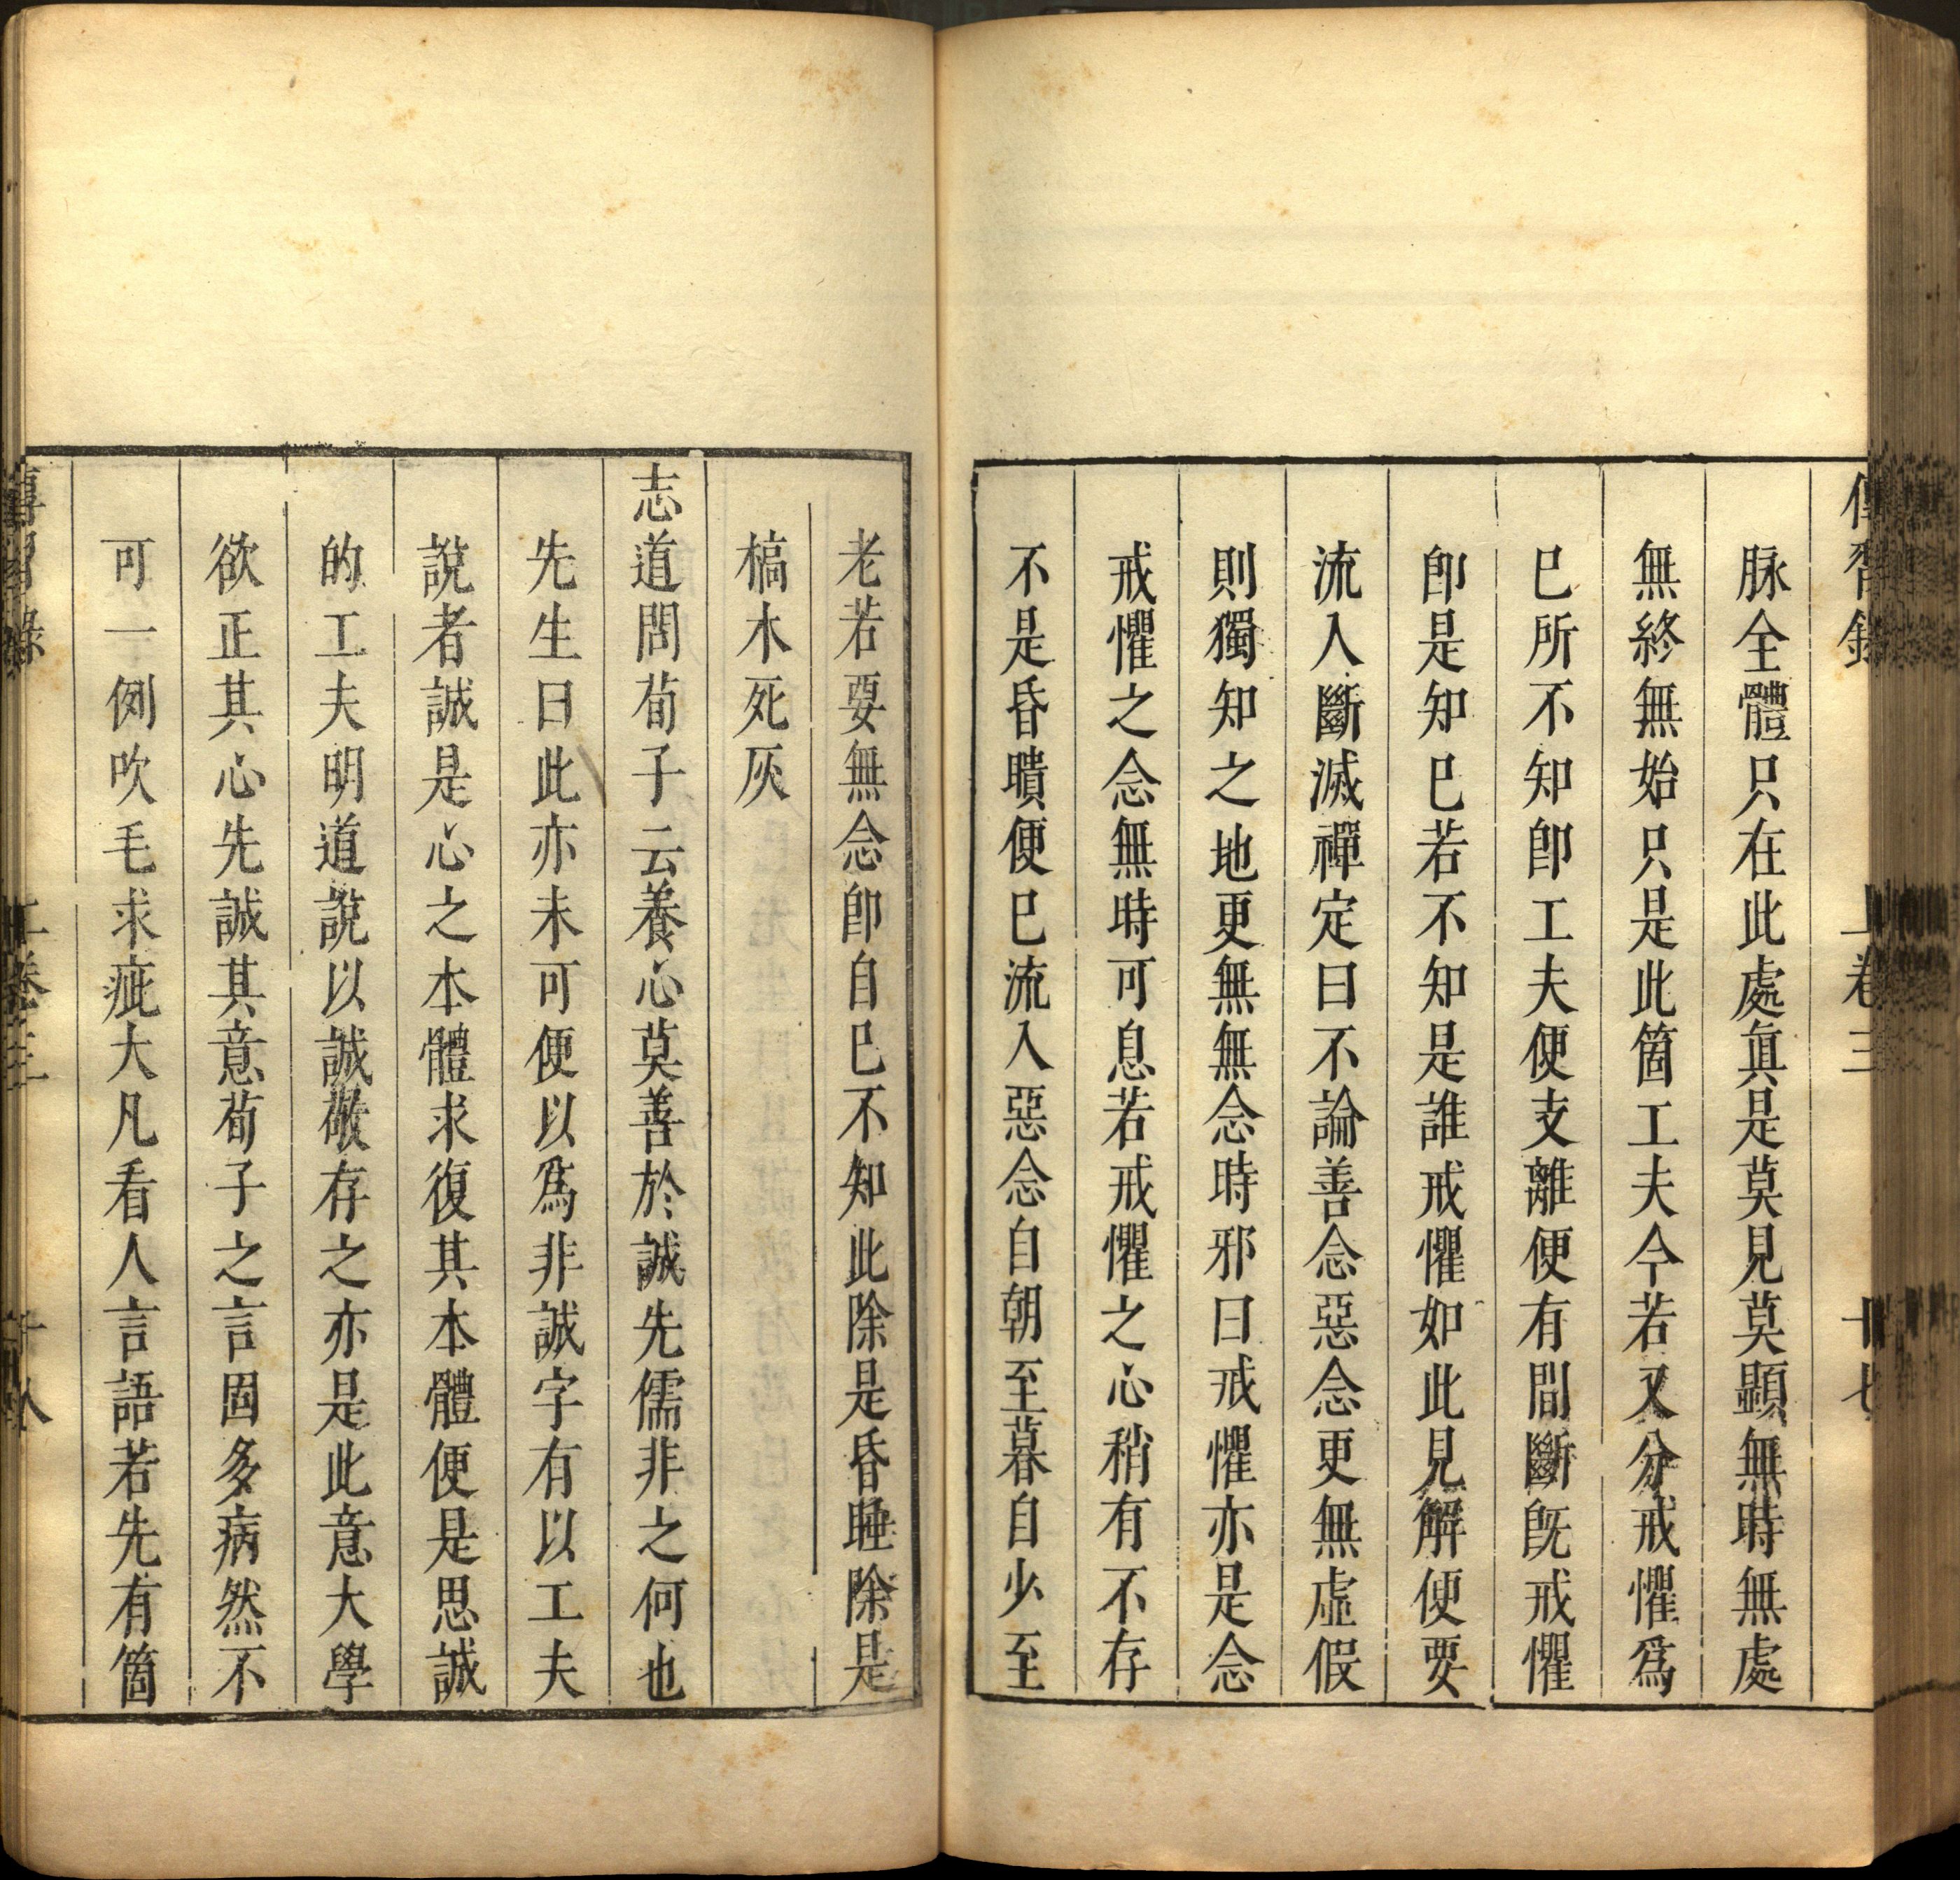 傳習錄 上卷三 十七
脉全體只在此處眞是莫見莫顯無時無處
無終無始只是此箇工夫今若又分戒懼爲
已所不知卽工夫便支離便有間斷旣戒懼
卽是知已若不知是誰戒懼如此見解便要
流入斷滅禪定曰不論善念惡念更無虛假
則獨知之地更無無念時邪曰戒懼亦是念
戒懼之念無時可息若戒懼之心稍有不存
不是昏瞶便已流入惡念自朝至暮自少至
老若要無念卽自已不知此除是昏睡除是
槁木死灰
志道問荀子云養心莫善於誠先儒非之何也
先生曰此亦未可便以爲非誠字有以工夫
說者誠是心之本體求復其本體便是思誠
的工夫明道說以誠敬存之亦是此意大學
欲正其心先誠其意荀子之言固多病然不
可一例吹毛求疵大凡看人言語若先有箇
傳習錄 卷三 十八